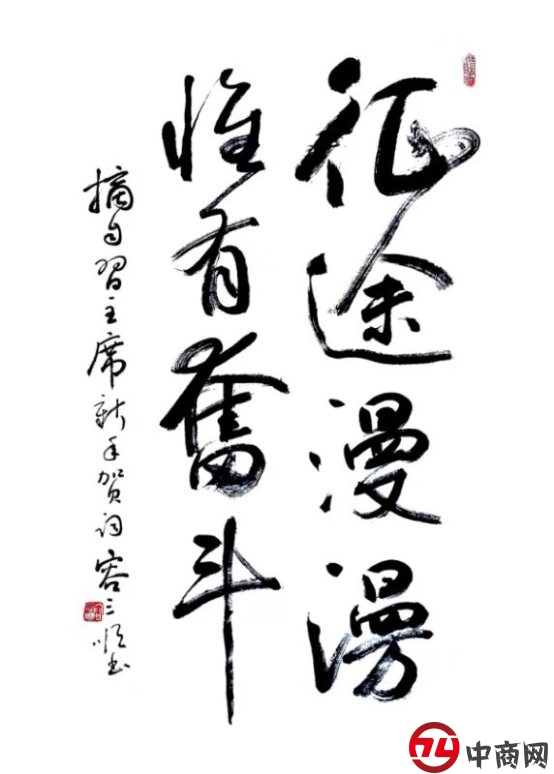 征途漫漫
惟有奋斗
摘自习主席新年贺词 容三顺书
中商网